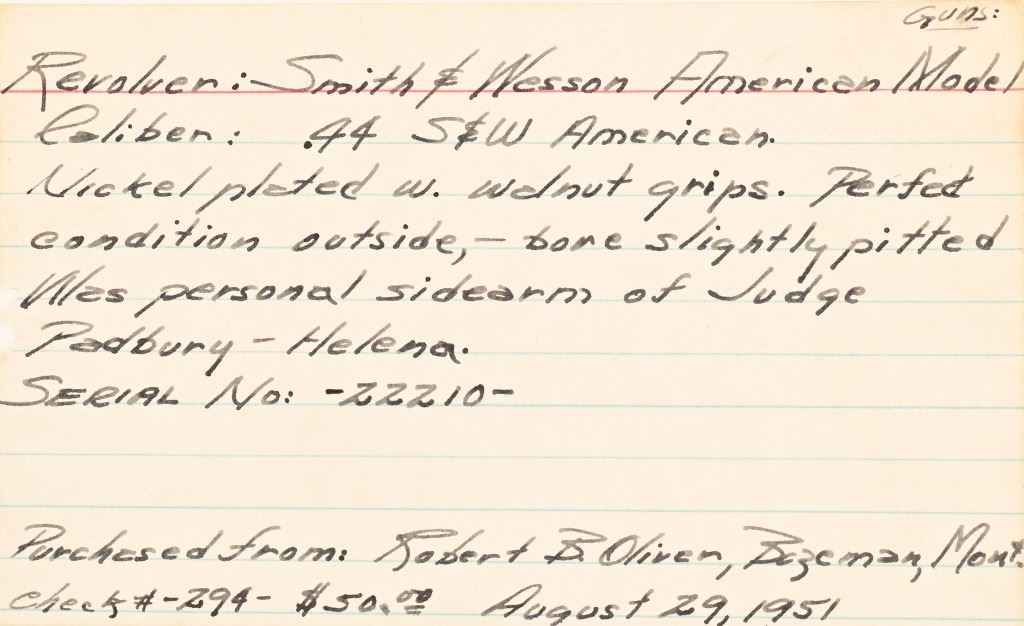 Guns:
Revolver: Smith & Wesson American Model
Caliber: .44 S&W American.
Nickel plated w. walnut grips. Perfect
condition outside, - bore slightly pitted
Was personal sidearm of Judge
Padbury - Helena.
SERIAL No: -22210-
Purchased from: Robert B. Oliver, Bozeman, Mont.
check # -294- $50.00 August 29, 1951